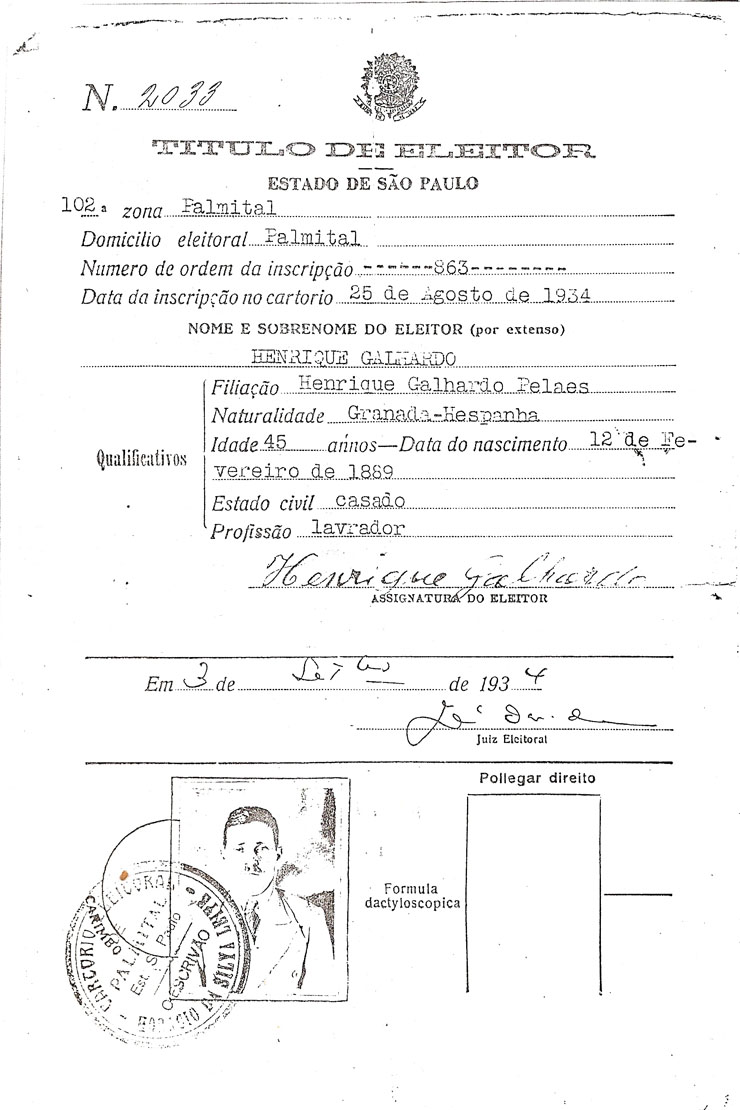 N. 2033
TITULO DE ELEITOR
ESTADO DE SÃO PAULO
102ª zona Palmital
Domicilio eleitoral Palmital
Numero de ordem da inscripção ------863--------
Data da inscripção no cartorio 25 de Agosto de 1934
NOME E SOBRENOME DO ELEITOR (por extenso)
HENRIQUE GALHARDO
Qualificativos
Filiação Henrique Galhardo Pelaes
Naturalidade Granada-Hespanha
Idade 45 annos—Data do nascimento 12 de Fe-
vereiro de 1889
Estado civil casado
Profissão lavrador
Henrique Galhardo
ASSIGNATURA DO ELEITOR
Em 3 de de 1934
Juiz Eleitoral
Pollegar direito
Formula
dactyloscopica
CARTORIO ELEITORAL
CARIMBO
PALMITAL
Est. S. Paulo
O ESCRIVÃO
DA SILVA LEITE